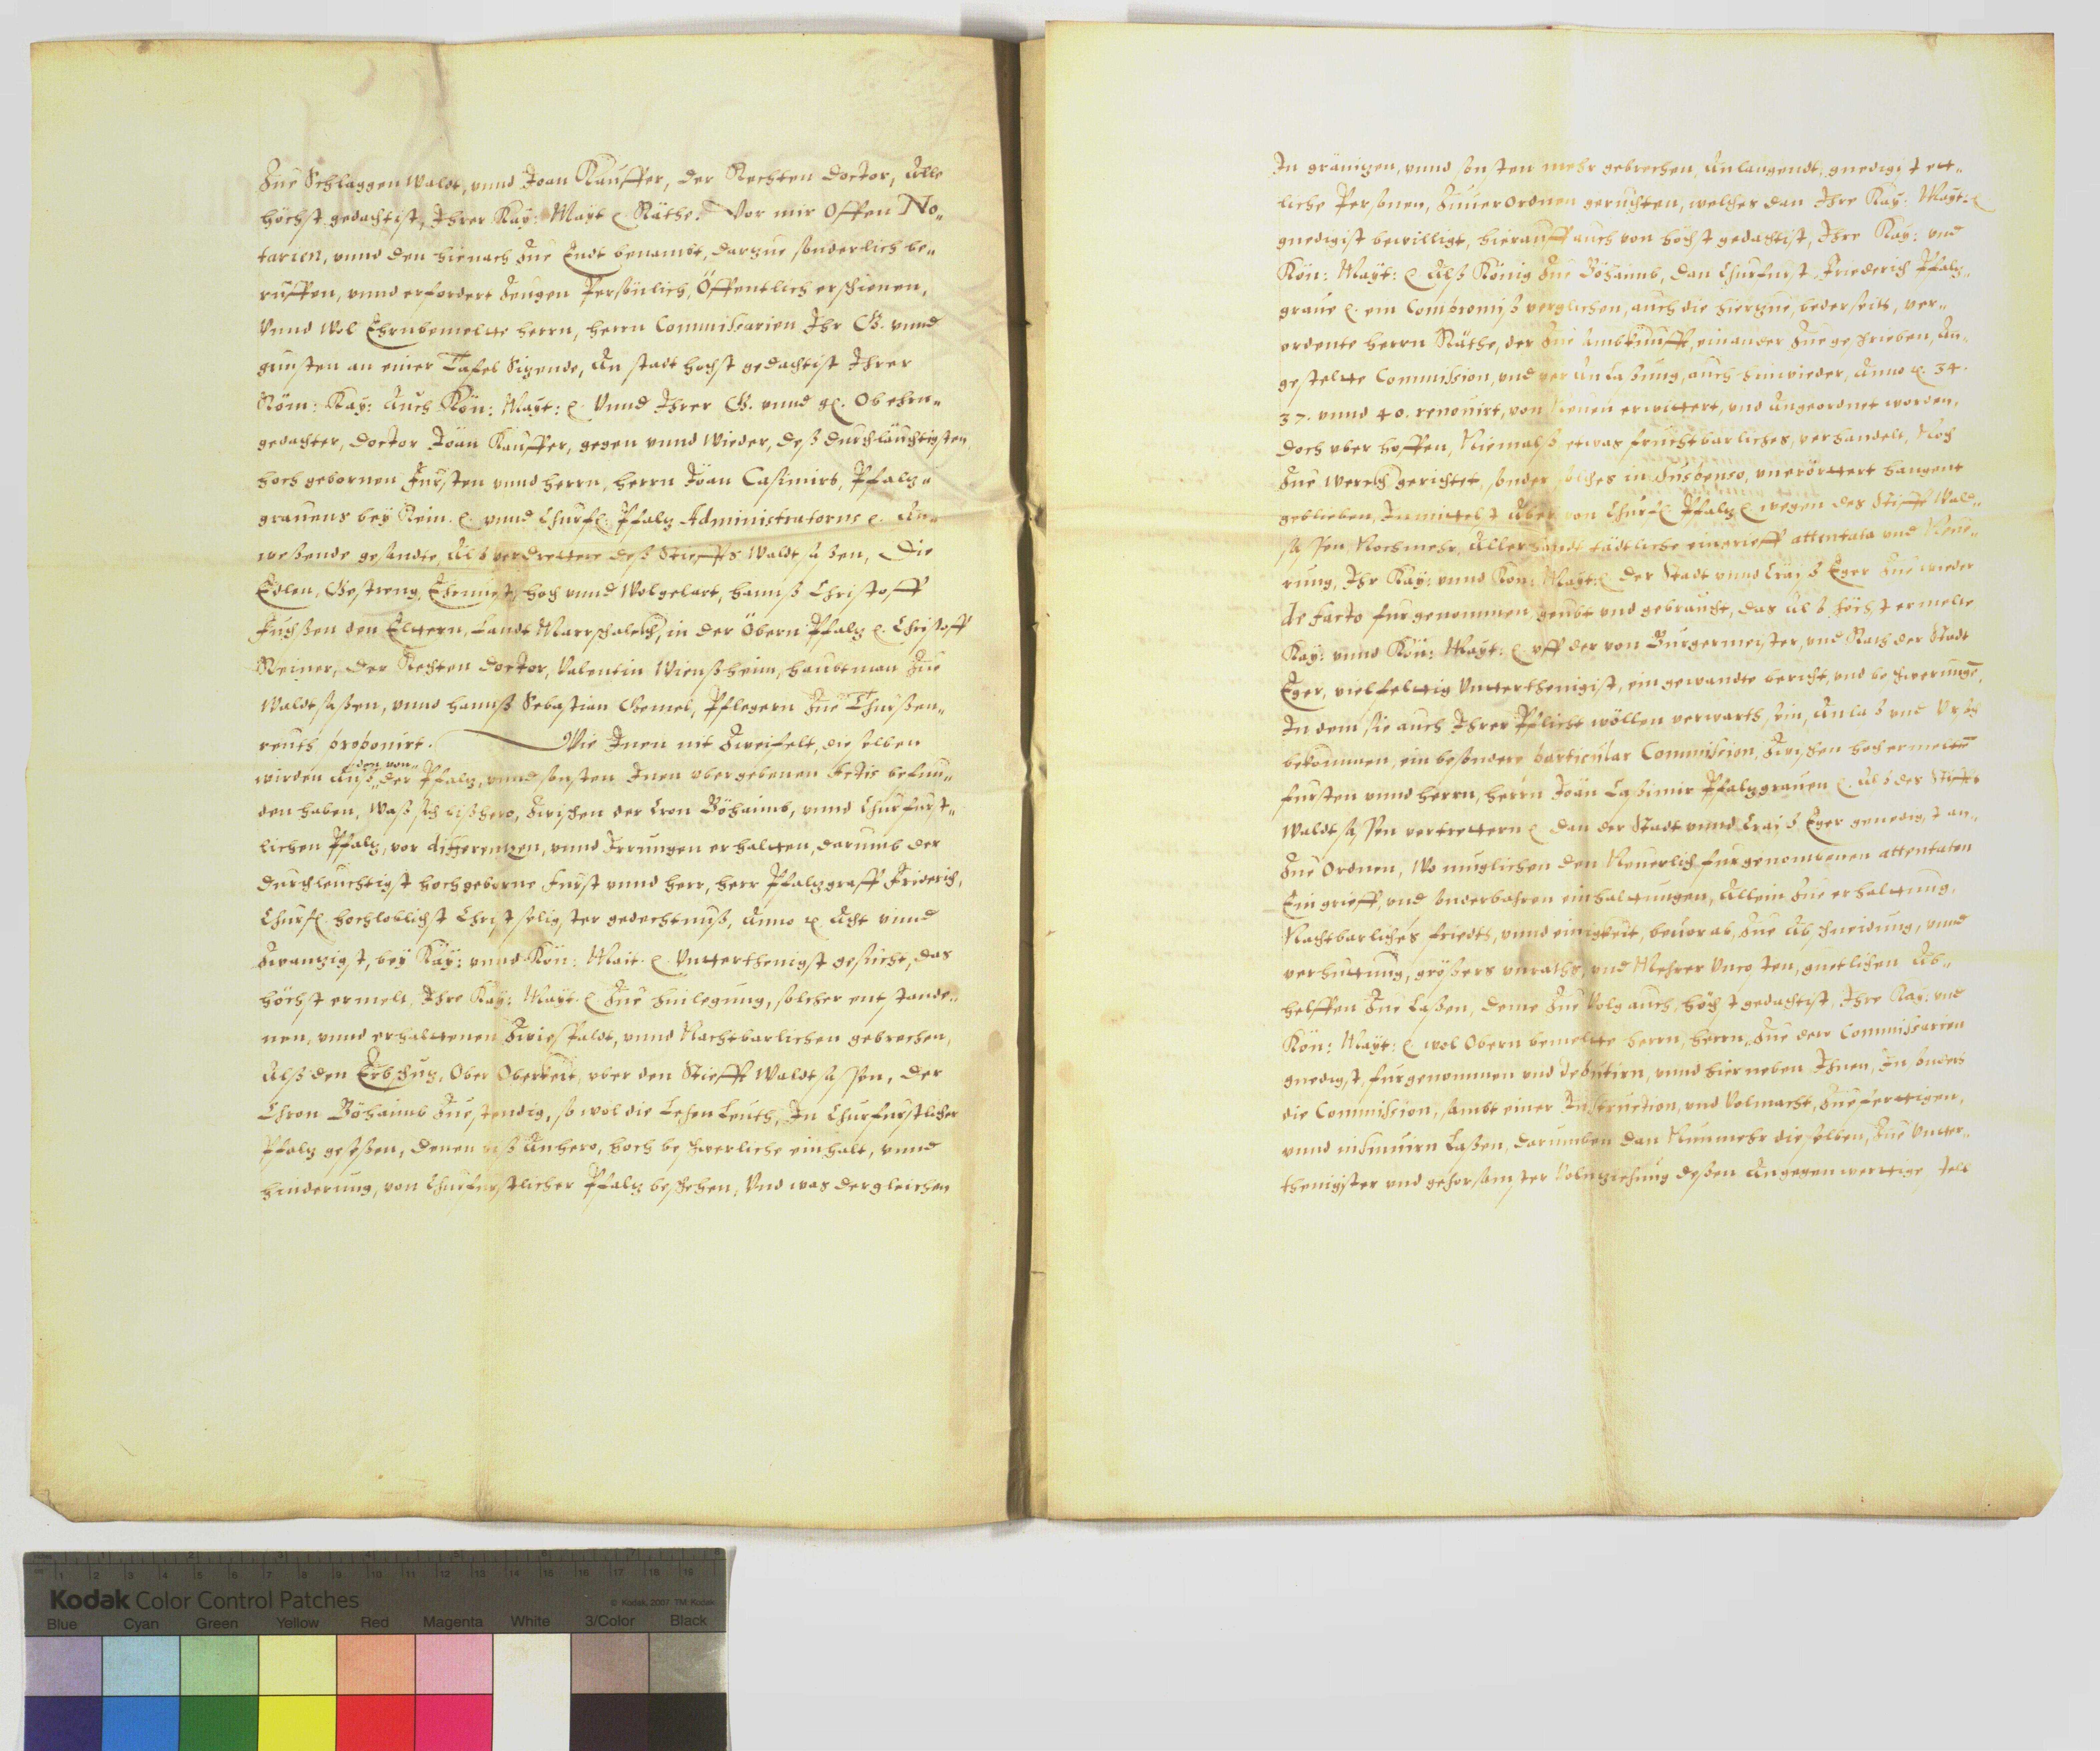 Zue Schlaggen Waldt, unnd Joan Kauffer, der Rechten Doctor, Alle
höchst gedachtist, Ihrer Kay: Mayt ꝛc. Räthe. Vor mir Offen No„
tarien, unnd den hienach Zue Endt benambt, darzue sonderlich be„
ruffen, unnd erfordert Zeugen Persönlich, Öffentlich erschienen,
Unnd Wol Ehrnbemelte herrn, herrn Commissarien Ihr G. unnd
gunsten an einer Tafel Sizende, An stadt hochst gedachtist Ihrer
Röm: Kay: Auch Kön: Mayt: ꝛc. Unnd Ihrer G. unnd gl. Ob ehrn„
gedachter, Doctor Joan Kauffer, gegen unnd Wieder, deß durchläuchtigsten
hoch gebornen Fursten unnd herrn, herrn Joan Casimirs, Pfalz„
grauens bey Rein. ꝛc. unnd Churfl. Pfalz Administratorns ꝛc. An„
weßende gesandte, Als verdrettere deß Stieffts Waldtsaßen, Die
Edlen, Gestreng, Ehrnuest, hoch unnd Wolgelart, hannß Christoff
Fuchßen den Eltern, Landt Marrschalckh, in der Öbern Pfalz ꝛc. Christoff
Reiner, der Rechten Doctor, Valentin Wienßheim, haubtman Zue
Waldtsaßen, unnd hannß Sebastian Gemel, Pflegern Zue Thurßen„
reuth proponirt. Wie Inen nit Zweifelt, die selben
wirden Auß den von der Pfalz, unnd sonsten Inen ubergebenen Actis befun„
den haben, Waß sich bißhero, Zwischen der Cron Böhaimb, unnd Churfurst„
lichen Pfalz, vor differentzen, unnd Irrungen erhalten, darumb der
durchleuchtigst hochgeborne Furst unnd herr, herr Pfalzgraff Friderich,
Churfl. hochloblichst Christseligster gedechtnuß, Anno ꝛc. Acht unnd
Zwanzigst, bey Kay: unnd Kön: Mait. ꝛc. Unterthenigst gesucht, das
höchst ermelt, Ihre Kay: Mayt. ꝛc. Zue hinlegung, solcher entstande„
nen, unnd erhaltenen Zwiespaldt, unnd Nachtbarlichen gebrechen,
Alß den Erbschuz, Ober Oberkeit, uber den Stiefft Waldtsassen, der
Chron Böhaimb Zuestendig, so wol die Lehen Leuth, In Churfurstlicher
Pfalz geseßen, denen biß Anhero, hoch beschwerliche einhalt, unnd
hinderung, von Churfurstlicher Pfalz beschehen, Und was dergleichen
In gränitzen, unnd sonsten mehr gebrechen, Anlangendt, gnedigist ett„
liche Personen, Zuuerordnen geruchten, welches dan Ihre Kay: Mayt: ꝛc
gnedigist bewilligt, hierauff auch von höchst gedachtist, Ihre Kay: und
Kön: Mayt: ꝛc Alß König Zue Böhaimb, dan Churfurst, Friederich Pfalz„
graue ꝛc. ein Compromiß verglichen, auch die hierzue, bederseits, ver„
ordente herrn Räthe, der Zue Ambkunfft, einander Zuegeschrieben, An„
gestelte Commission, und verAnlaßung, auch hinwieder, Anno ꝛc. 34.
37. unnd 40. renouirt, von Neuen erwittert, und Angeordnet worden,
doch uber hoffen, Niemalß etwas fruchtbarliches, verhandelt, Noch
Zue Werckh gerichtet, sonder solches in suspenso, unerörttert hangent
geblieben, Immittelst Aber, von Churfl. Pfalz ꝛc wegen des Stiffts Wald„
sassen, Noch mehr, Allerhandt tädtliche eingrieff attentata und Neue„
rung, Ihr Kay: unnd Kön: Mayt: ꝛc. der Stadt unnd Craiß Eger Zue wieder
de facto furgenommen, geubt und gebraucht, das Alß höchst ermelte
Kay: unnd Kön: Mayt: ꝛc uff der von Burgermeister, und Rath der Stadt
Eger, vielfeltig Unterthenigist, eingewandte bericht, und beschwerunge,
In dem sie auch Ihrer Pflicht wöllen verwarth, sein, Anlaß und Ursach
bekommen, ein besondere particular Commission, Zwischen hochermelte
fursten unnd herrn, herrn Joan Casimir Pfalzgrauen ꝛc. Als des Stiffts
Waldtsassen vertrettern ꝛc dan der Stadt unnd Craiß Eger genedigst an„
Zue Ordnen, Wo muglichen den Neuerlich furgenombenen attentaten
Eingrieff, und sonderbahren einhaltungen, Allein Zue erhaltung,
Nachtbarliches friedts, unnd einigkeit, beuor ab, Zue Abschneidung, unnd
verhuttung, größers unraths, und Mehrer Uncosten, guetlichen Ab„
helffen Zue Laßen, deme Zue Volg auch, höchst gedachtist, Ihre Kay: und
Kön: Mayt: ꝛc wol Obern bemelte herrn, herrn, Zue dero Commissarien
gnedigst, furgenommen und deputirn, unnd hierneben Ihnen, In sonders
die Commission, sambt einer Instruction, und Volmacht, Zuefertigen,
unnd insinuirn Laßen, darumben dan Nunmehr dieselben, Zue Unter„
thenigster und gehorsamster Volnziehung deßen Angegenwertige stell